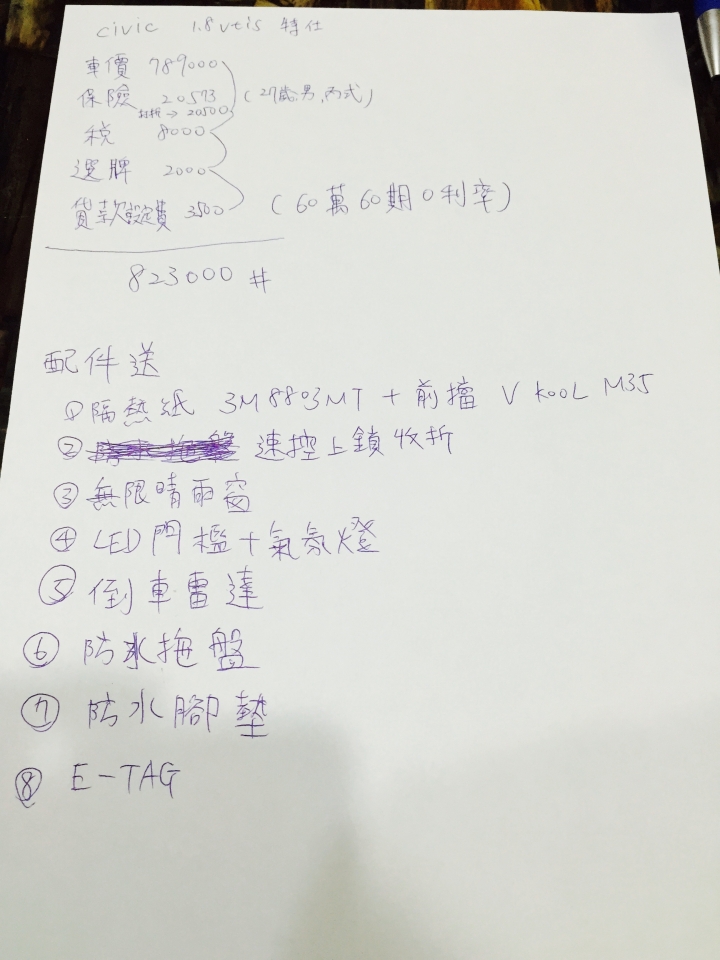 civic 1.8 vtis 特仕
車價 789000
保險 20573 (27歲.男.丙式)
打折 → 20500
稅 8000
選牌 2000
貸款設定費 3500 (60萬60期0利率)
823000 #
配件送
① 隔熱紙 3M8803MT + 前擋 V KOOL M35
② 速控上鎖收折
③ 無限晴雨窗
④ LED門檻+氣氛燈
⑤ 倒車雷達
⑥ 防水拖盤
⑦ 防水腳墊
⑧ E-TAG